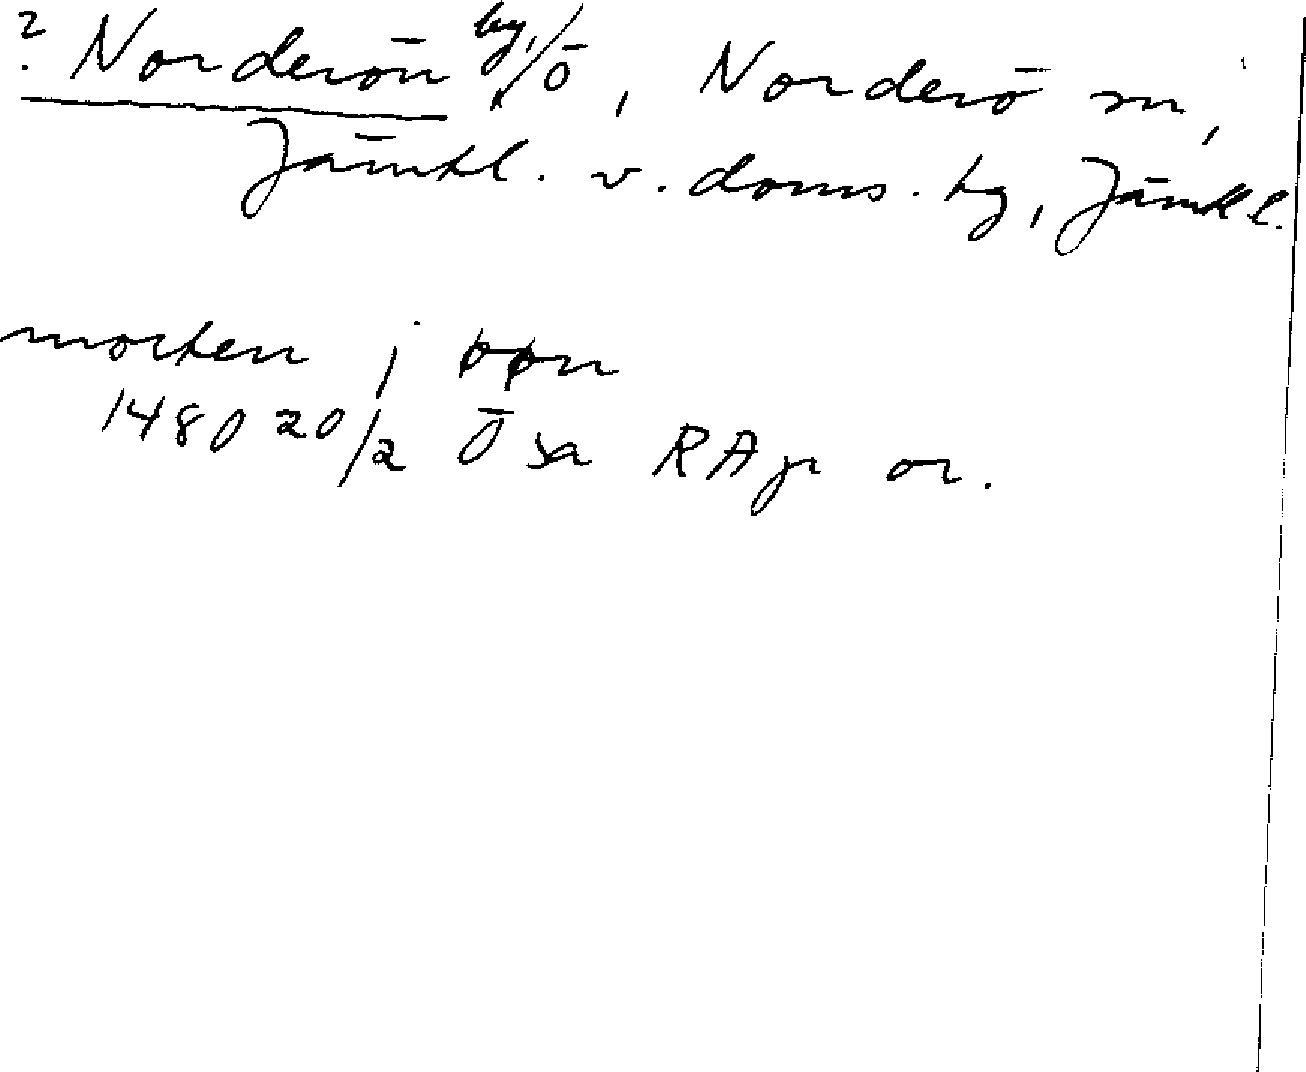 ? Norderön by/ö, Norderö sn,
Jämtl. v. doms. tg, Jämtl.
morten j øøn
1480 20/2 Ösa RAp or.